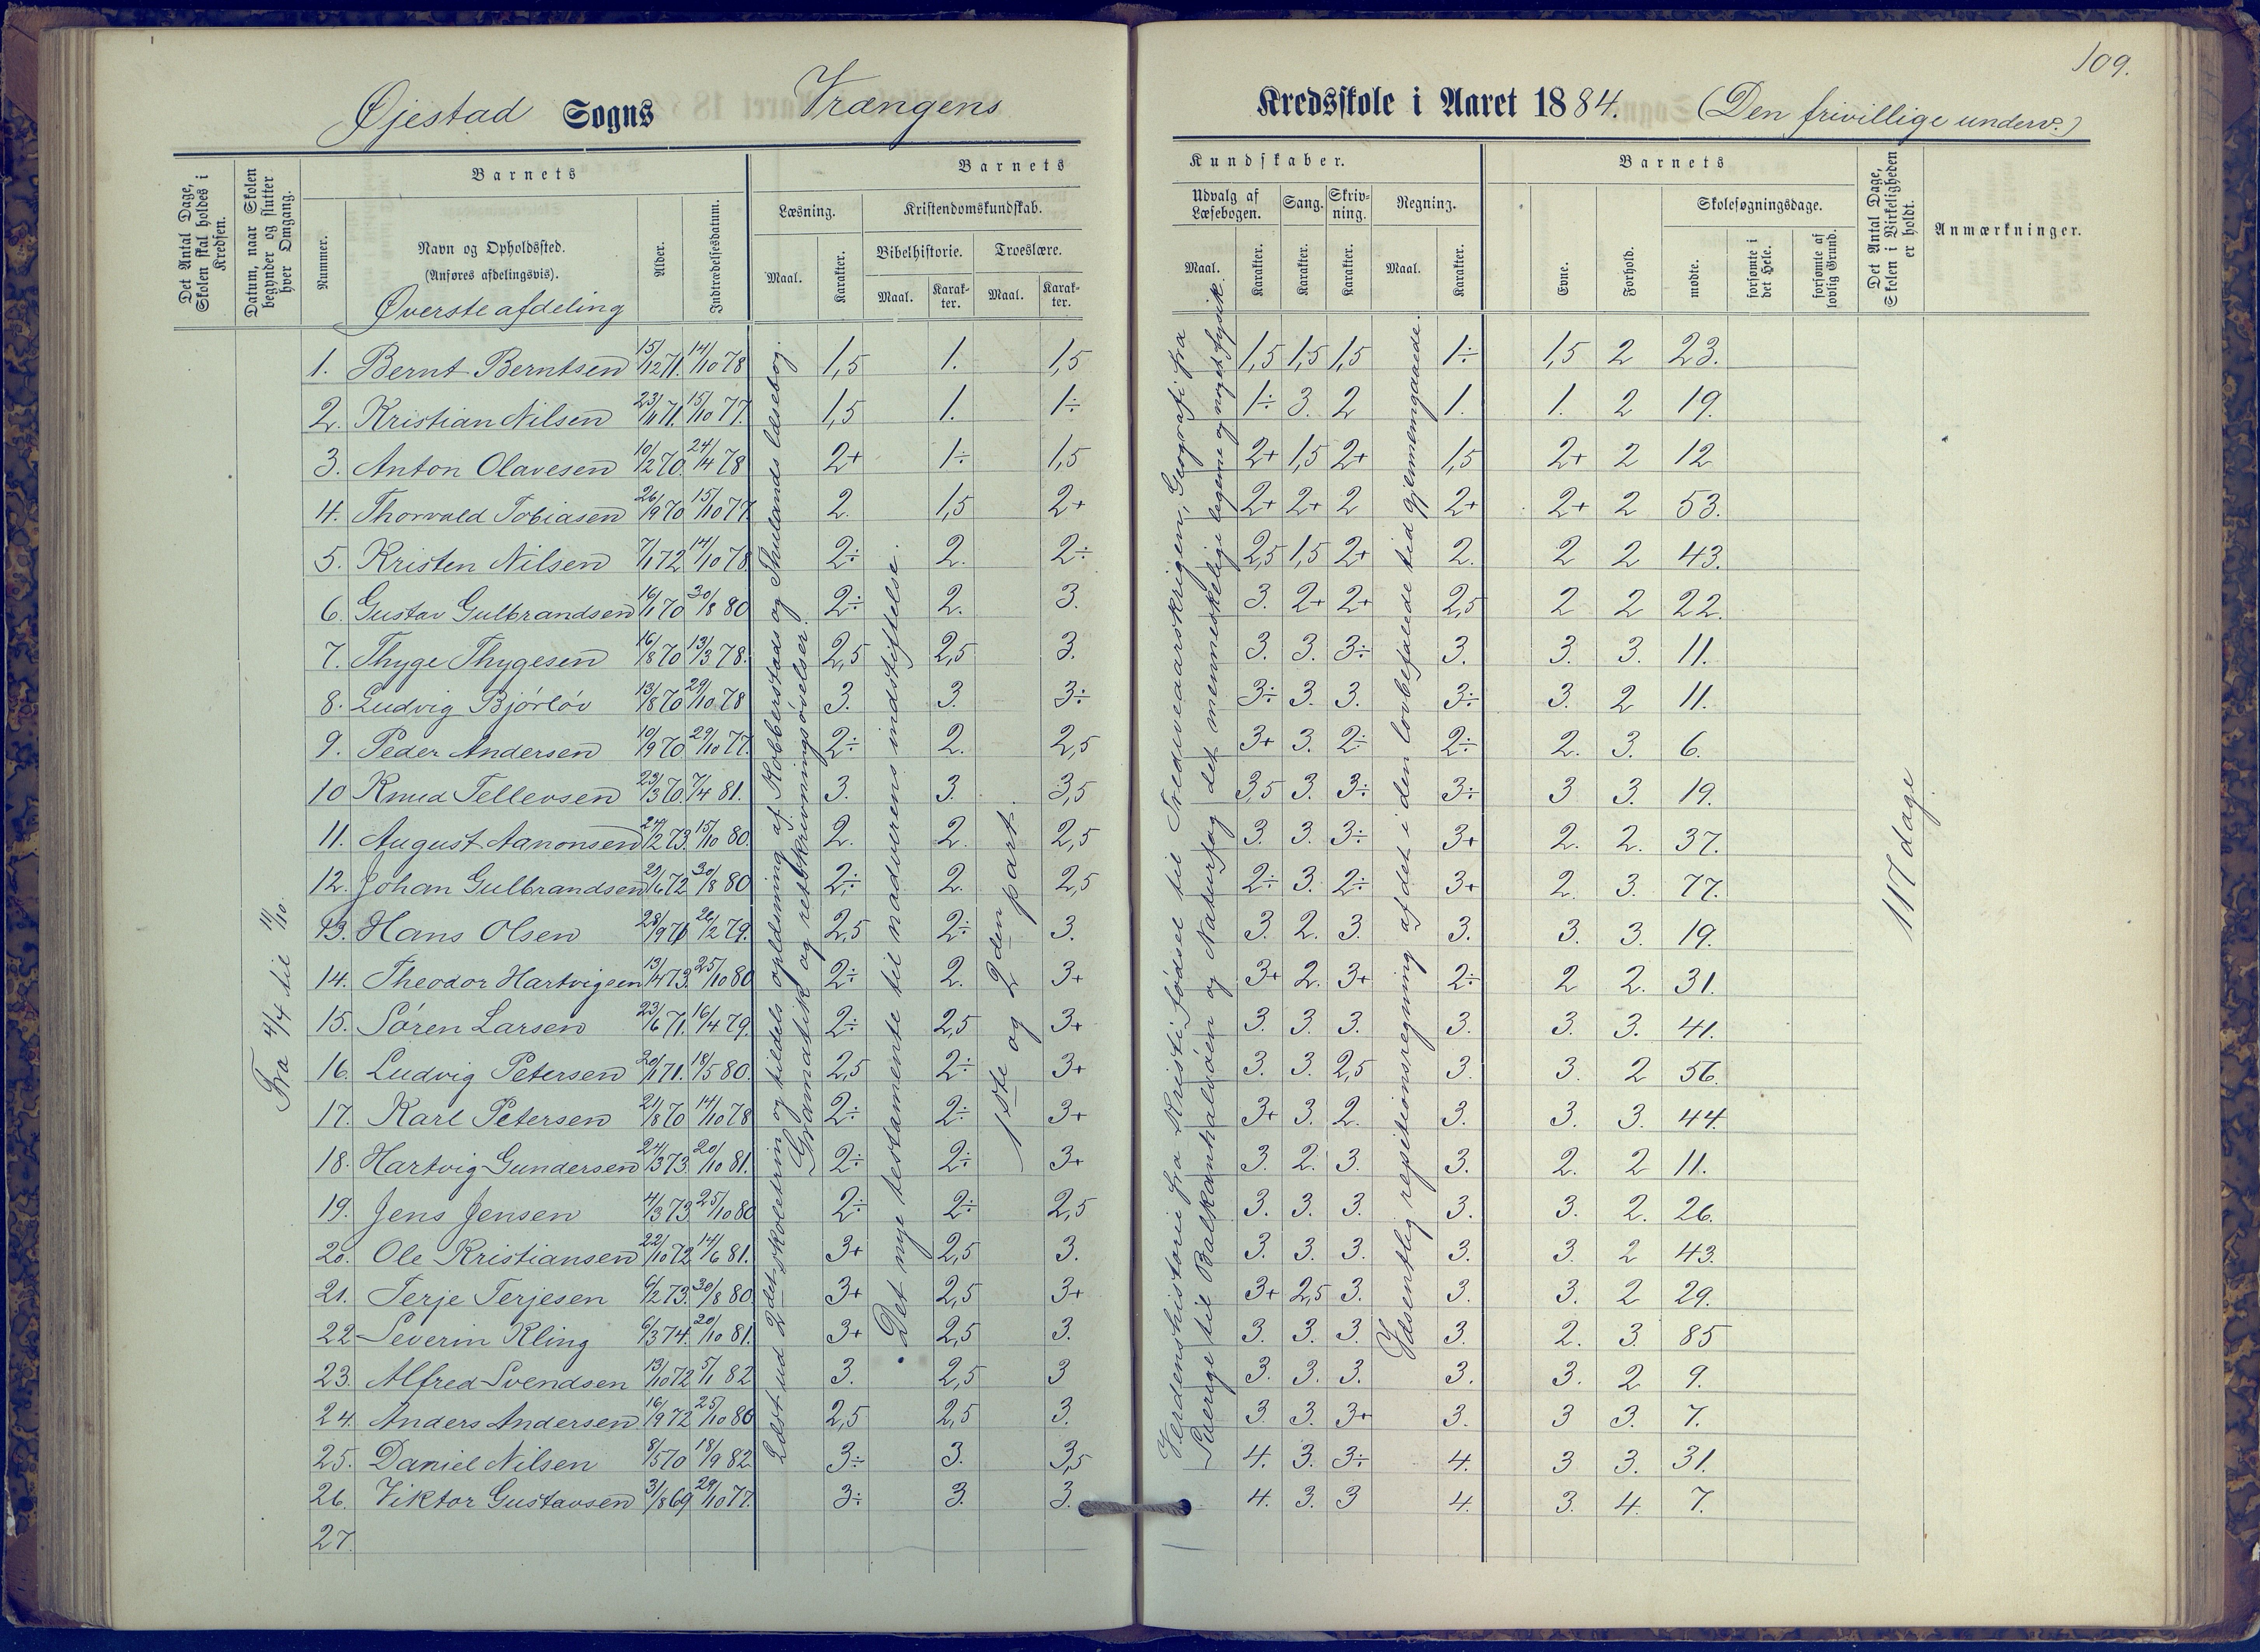 109.
Øjestad Sogns Vrængens Kredsskole i Aaret 1884. (Den frivillige underv.)
Det Antal Dage, Skolen skal holdes i Kredsen.
Datum, naar Skolen begynder og slutter hver Omgang.
Barnets
Nummer.
Navn og Opholdssted.
(Anføres afdelingsvis).
Alder.
Indtrædelsesdatum.
Barnets Kundskaber.
Læsning.
Maal.
Karakter.
Kristendomskundskab.
Bibelhistorie.
Maal.
Karakter.
Troeslære.
Maal.
Karakter.
Udvalg af Læsebogen.
Maal.
Karakter.
Sang.
Karakter.
Skrivning.
Karakter.
Regning.
Maal.
Karakter.
Barnets
Evne.
Forhold.
Skolesøgningsdage.
mødte.
forsømte i det Hele.
forsømte af lovlig Grund.
Det Antal Dage, Skolen i Virkeligheden er holdt.
Anmærkninger.
Øverste afdeling
1. Bernt Berntsen 15/12 71. 14/10 78 1,5 1. 1,5 1,5 1,5 1,5 1÷ 1,5 2 23.
2. Kristian Nilsen 23/11 71. 15/10 77. 1,5 1. 1÷ 1÷ 3. 2 1. 1. 2 19.
3. Anton Olavesen 10/2 70. 24/4 78 2+ 1÷ 1,5 2+ 1,5 2+ 1,5 2+ 2 12
4. Thorvald Tobiasen 26/9 70 15/10 77 2. 1,5 2+ 2+ 2+ 2 2+ 2+ 2 53.
5. Kristen Nilsen 7/1 72 14/10 78. 2÷ 2. 2÷ 2,5 1,5 2+ 2. 2 2 43.
6. Gustav Gulbrandsen 16/1 70 30/8 80 2÷ 2. 3. 3. 2+ 2+ 2,5 2 2 22.
7. Thyge Thygesen 16/8 70 13/3 78. 2,5 2,5 3. 3. 3. 3÷ 3. 3. 3. 11.
8. Ludvig Bjørløv 13/8 70 29/10 78 3. 3. 3÷ 3÷ 3. 3. 3÷ 3. 2 11.
9. Peder Andersen 10/9 70. 29/10 77. 2÷ 2. 2,5 3+ 3. 2÷ 2÷ 2. 3. 6.
10 Knud Tellevsen 23/3 70. 7/4 81. 3. 3. 3,5 3,5 3. 3÷ 3÷ 3 3. 19.
11. August Aanonsen 27/2 73. 15/10 80. 2. 2. 2,5 3. 3. 3÷ 3+ 2. 2. 37.
12. Johan Gulbrandsen 29/6 72 30/8 80 2÷ 2. 2,5 2÷ 3. 2÷ 3+ 2. 3. 77.
13. Hans Olsen 28/9 71 26/2 79. 2,5 2÷ 3. 3. 2. 3. 3. 3. 3. 19.
14. Theodor Hartvigsen 13/4 73. 25/10 80 2÷ 2. 3+ 3+ 2. 3+ 2÷ 2 2. 31.
15. Søren Larsen 23/6 71. 16/4 79. 2÷ 2,5 3+ 3. 3. 3. 3. 3. 3. 41.
16. Ludvig Petersen 20/1 71. 18/5 80. 2,5 2÷ 3+ 3. 3. 2,5 3. 3. 2 56.
17. Karl Petersen 21/8 70 14/10 78 2÷ 2÷ 3+ 3+ 3. 2. 3. 3. 3. 44.
18. Hartvig Gundersen 24/3 73 20/10 81. 2÷ 2÷ 3+ 3. 2. 3. 3. 2. 2 11.
19. Jens Jensen 4/3 73 25/10 80 2÷ 2÷ 2,5 3. 3. 3. 3. 3. 2. 26.
20. Ole Kristiansen 22/10 72 14/6 81. 3+ 2,5 3. 3. 3. 3. 3. 3. 2 43.
21. Terje Terjesen 6/2 73. 30/8 80 3+ 2,5 3+ 3+ 2,5 3. 3. 3. 2 29.
22 Severin Kling 6/3 74. 20/10 81. 3+ 2,5 3. 3. 3. 3. 3. 2. 3. 85
23. Alfred Svendsen 13/10 72 5/1 82 3. 2,5 3 3. 3. 3. 3. 3. 2 9.
24. Anders Andersen 16/9 72 25/10 80 2,5 2,5 3. 3. 3. 3+ 3. 3 3. 7.
25. Daniel Nilsen 8/5 70 18/9 82 3÷ 3. 3,5 4. 3. 3÷ 4. 3 3. 31.
26. Viktor Gustavsen 31/8 69 29/10 77. 3÷ 3. 3. 4. 3. 3 4. 3. 4. 7.
27.
Fra 4/4 til 11/10.
Læst ud 2det skoletrin og tildels opledning af Kobberstads og Thulands læsebog.
Gramatik og retskrivningsøvelser.
Det nye testamente til nadverens indstiftelse.
1ste og 2den part.
Verdenshistorie fra Kristi fødsel til Trediveaarskrigen, Geografi fra
Sverige til Balkanhalvøen og Naturfag det menneskelige legeme og noget fysik.
Væsentlig repetitionsregning af det i den lovbefalede tid gjennemgaaede.
117 dage